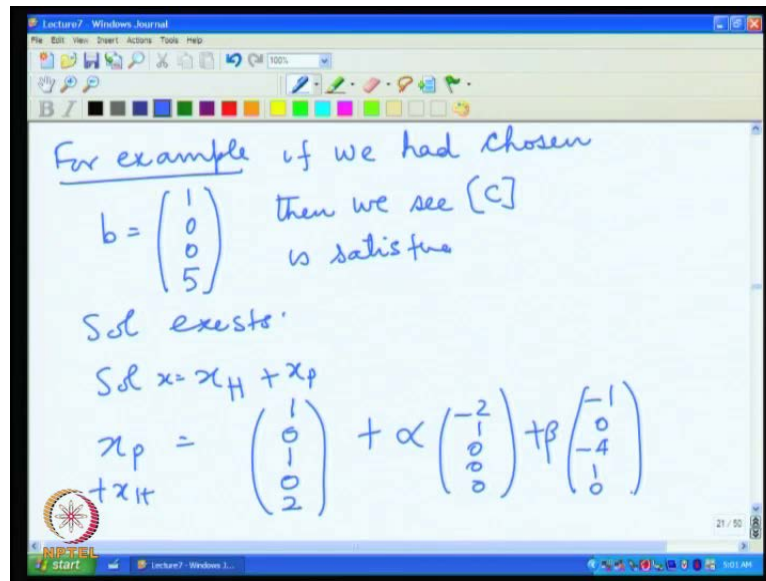 Lecture7 - Windows Journal
File Edit View Insert Actions Tools Help
100%
B I
For example if we had chosen
b = (1 0 0 5) then we see [C]
is satisfie
Sol exests.
Sol x = x_H + x_p
x_p + x_H = (1 0 1 0 2) + α (-2 1 0 0 0) + β (-1 0 -4 1 0)
21 / 50
NPTEL
start
Lecture7 - Windows J...
5:01 AM